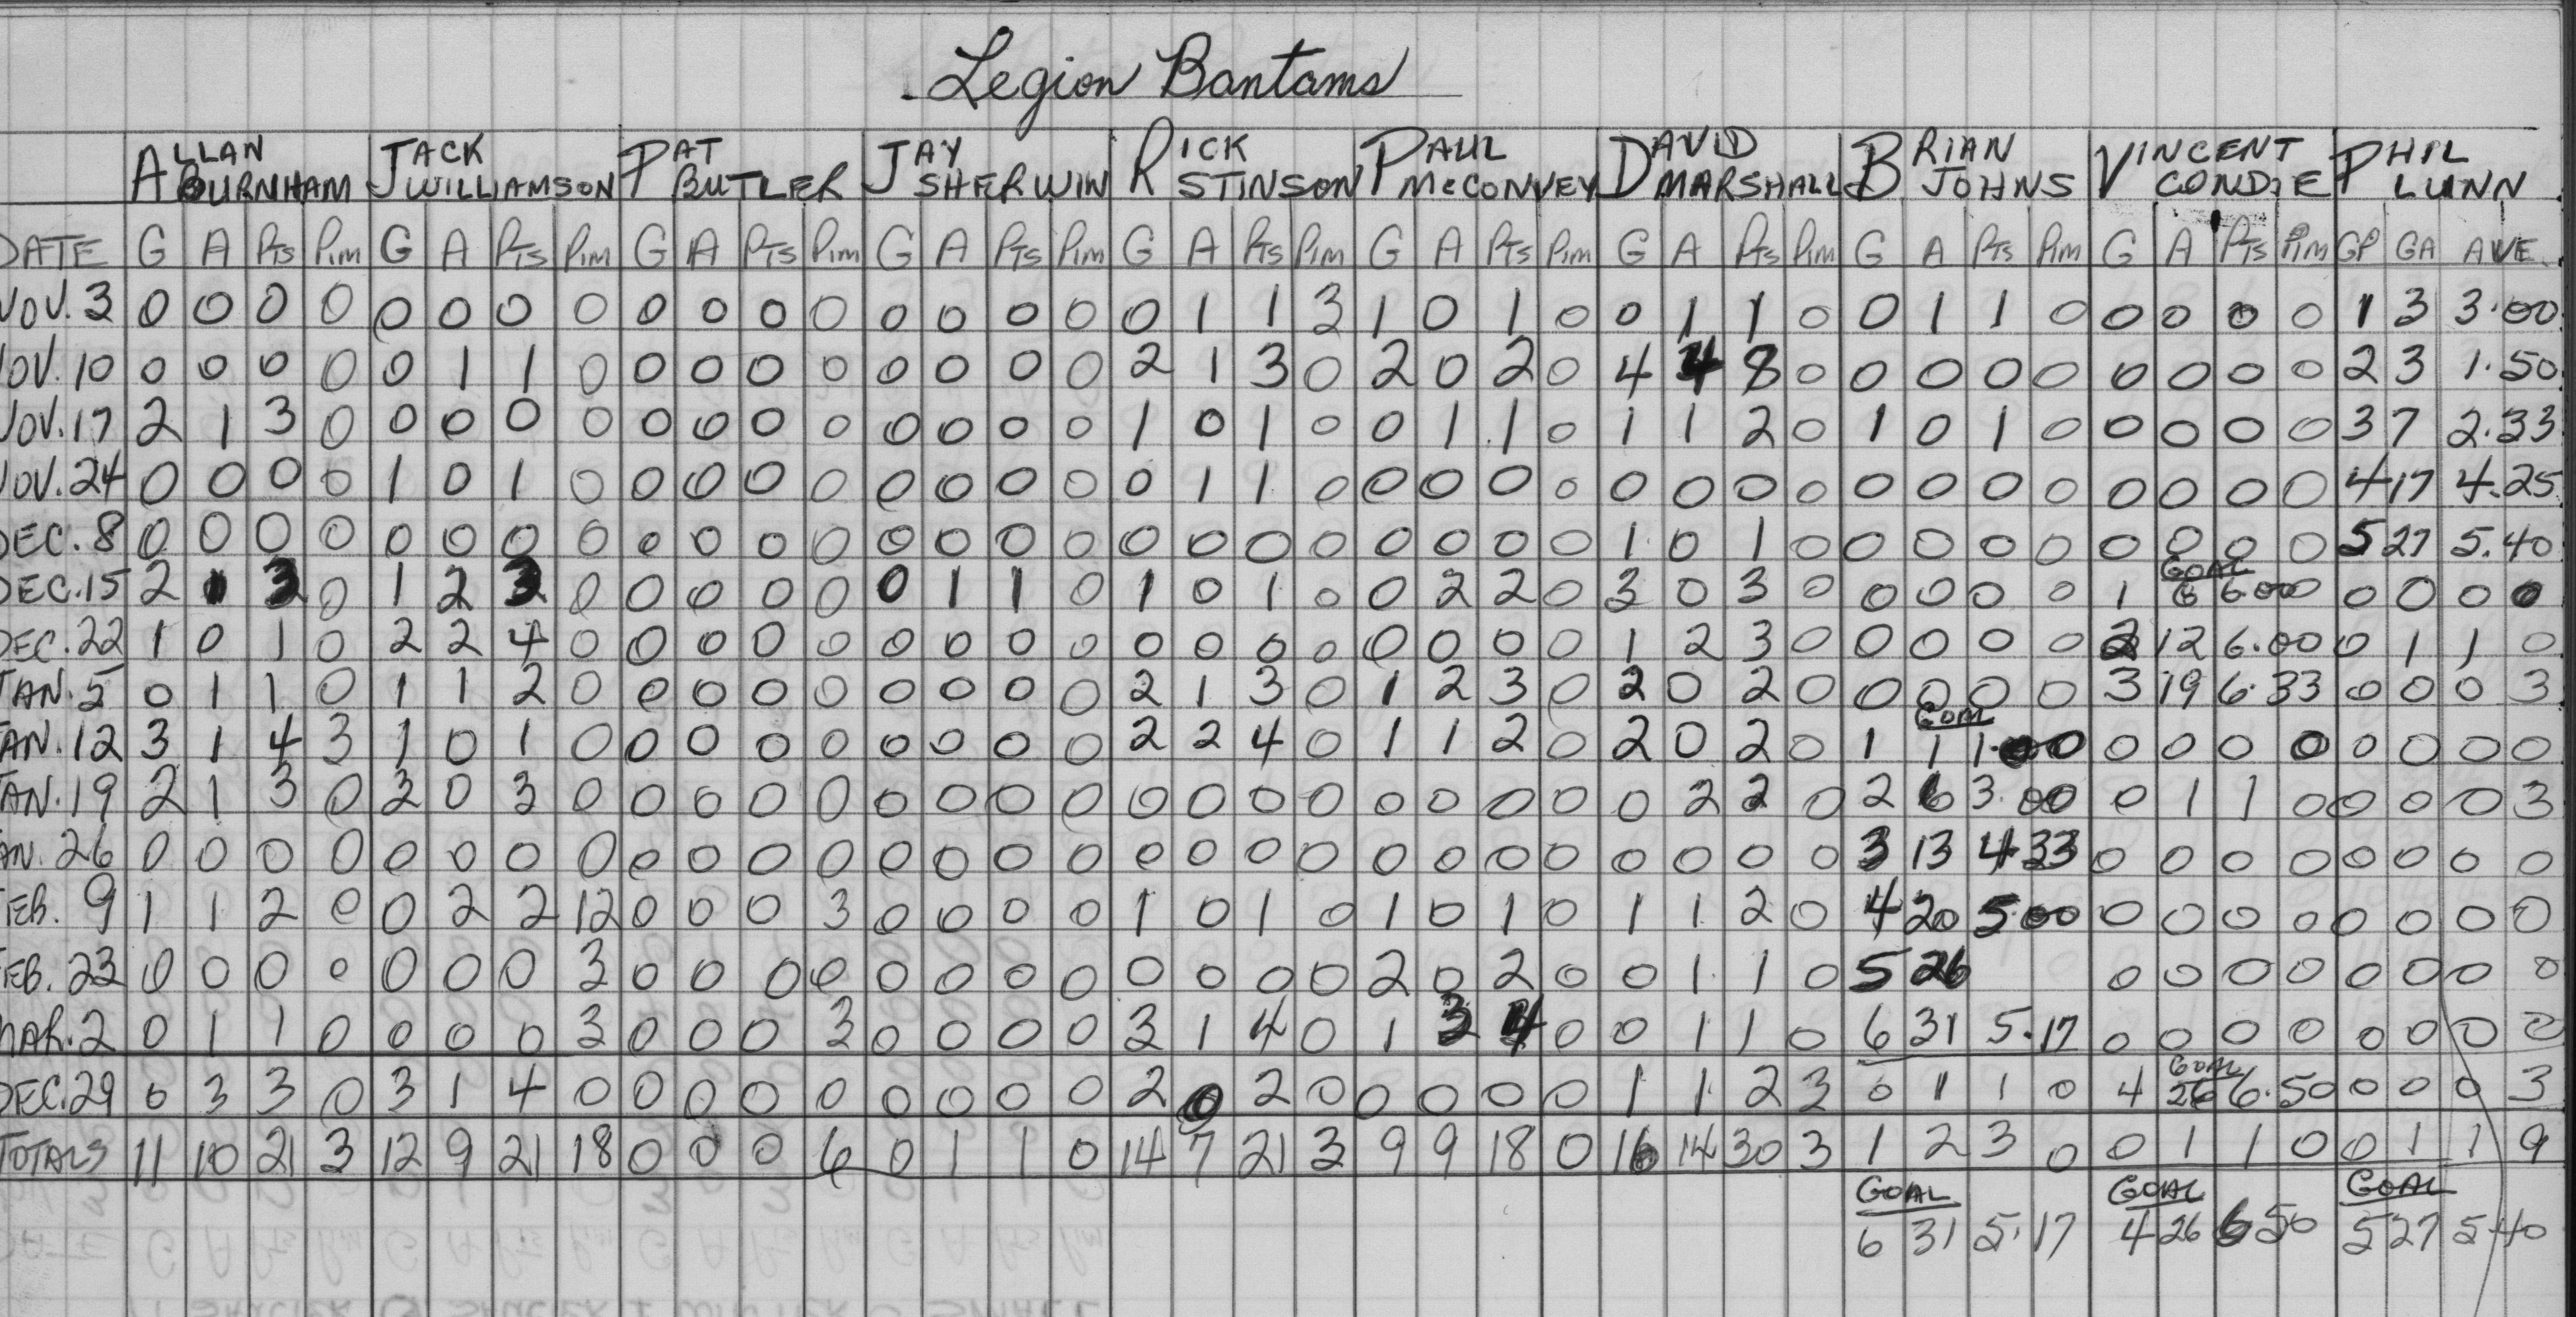 Legion Bantams
ALLAN JACK PAT JAY RICK PAUL DAVID BRIAN VINCENT PHIL
BURNHAM WILLIAMSON BUTLER SHERWIN STINSON McCONVEY MARSHALL JOHNS CONDIE LUNN
DATE G A PTS PIM G A PTS PIM G A PTS PIM G A PTS PIM G A PTS PIM G A PTS PIM G A PTS PIM G A PTS PIM G A PTS PIM GP GA AVE.
NOV. 3 0 0 0 0 0 0 0 0 0 0 0 0 0 0 0 0 0 1 1 3 1 0 1 0 0 1 1 0 0 1 1 0 0 0 0 0 1 3 3.00
NOV. 10 0 0 0 0 0 1 1 0 0 0 0 0 0 0 0 0 2 1 3 0 2 0 2 0 4 4 8 0 0 0 0 0 0 0 0 0 2 3 1.50
NOV. 17 2 1 3 0 0 0 0 0 0 0 0 0 0 0 0 0 1 0 1 0 0 1 1 0 1 1 2 0 1 0 1 0 0 0 0 0 3 7 2.33
NOV. 24 0 0 0 0 1 0 1 0 0 0 0 0 0 0 0 0 0 1 1 0 0 0 0 0 0 0 0 0 0 0 0 0 0 0 0 0 4 17 4.25
DEC. 8 0 0 0 0 0 0 0 0 0 0 0 0 0 0 0 0 0 0 0 0 0 0 0 0 1 0 1 0 0 0 0 0 0 0 0 0 5 27 5.40
GOAL
DEC. 15 2 1 3 0 1 2 3 0 0 0 0 0 0 1 1 0 1 0 1 0 0 2 2 0 3 0 3 0 0 0 0 0 1 6 6.00 0 0 0 0
DEC. 22 1 0 1 0 2 2 4 0 0 0 0 0 0 0 0 0 0 0 0 0 0 0 0 0 1 2 3 0 0 0 0 0 2 12 6.00 0 1 1 0
JAN. 5 0 1 1 0 1 1 2 0 0 0 0 0 0 0 0 0 2 1 3 0 1 2 3 0 2 0 2 0 0 0 0 0 3 19 6.33 0 0 0 3
GOAL
JAN. 12 3 1 4 3 1 0 1 0 0 0 0 0 0 0 0 0 2 2 4 0 1 1 2 0 2 0 2 0 1 1 1.00 0 0 0 0 0 0 0 0
JAN. 19 2 1 3 0 3 0 3 0 0 0 0 0 0 0 0 0 0 0 0 0 0 0 0 0 0 2 2 0 2 6 3.00 0 1 1 0 0 0 0 3
JAN. 26 0 0 0 0 0 0 0 0 0 0 0 0 0 0 0 0 0 0 0 0 0 0 0 0 0 0 0 0 3 13 4 33 0 0 0 0 0 0 0 0
FEB. 9 1 1 2 0 0 2 2 12 0 0 0 3 0 0 0 0 1 0 1 0 1 0 1 0 1 1 2 0 4 20 5.00 0 0 0 0 0 0 0 0
FEB. 23 0 0 0 0 0 0 0 3 0 0 0 0 0 0 0 0 0 0 0 0 2 0 2 0 0 1 1 0 5 26 0 0 0 0 0 0 0 0
MAR. 2 0 1 1 0 0 0 0 3 0 0 0 3 0 0 0 0 3 1 4 0 1 3 4 0 0 1 1 0 6 31 5.17 0 0 0 0 0 0 0 0
GOAL
DEC. 29 0 3 3 0 3 1 4 0 0 0 0 0 0 0 0 0 2 0 2 0 0 0 0 0 1 1 2 3 0 1 1 0 4 26 6.50 0 0 0 3
TOTALS 11 10 21 3 12 9 21 18 0 0 0 6 0 1 1 0 14 7 21 3 9 9 18 0 16 14 30 3 1 2 3 0 0 1 1 0 0 1 1 9
GOAL GOAL GOAL
6 31 5.17 4 26 6 50 5 27 5 40